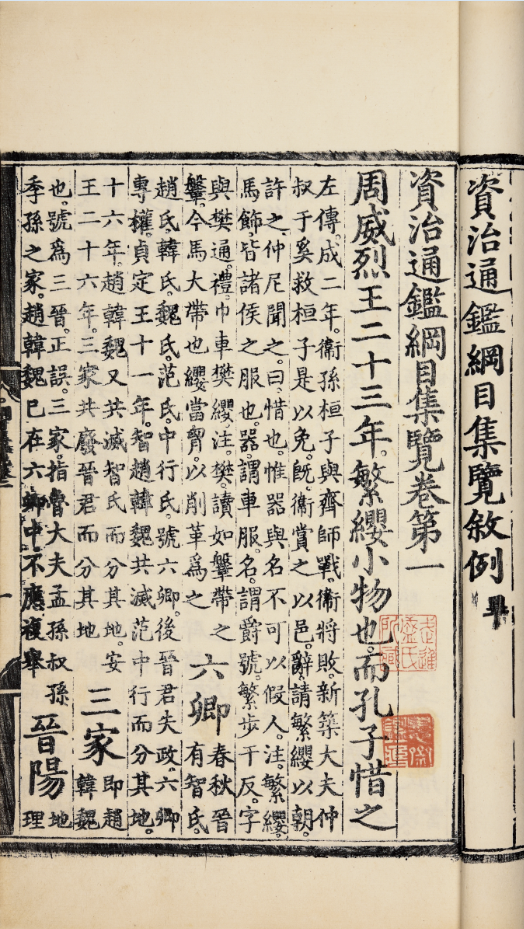 資治通鑑綱目集覽敘例畢
資治通鑑綱目集覽卷第一
周威烈王二十三年。繁纓小物也。而孔子惜之
左傳。成二年。衞孫桓子與齊師戰。衞將敗。新築大夫仲
叔于奚救桓子是以免。既衞賞之以邑。辭。請繁纓以朝。
許之。仲尼聞之。曰。惜也。惟器與名不可以假人。注。繁纓。
馬飾。皆諸侯之服也。器。謂車服。名。謂爵號。繁步干反。字
與樊通。禮巾車樊纓。注。樊讀如鞶帶之
鞶。今馬大帶也。纓當胷。以削革爲之
六卿
春秋晉
有智氏。
趙氏。韓氏。魏氏。范氏。中行氏。號六卿。後晉君失政。六卿
專權。貞定王十一年。智趙韓魏共滅范中行而分其地。
十六年。趙韓魏又共滅智氏而分其地。安
王二十六年。三家共廢晉君而分其地
三家
即趙
韓魏
也。號爲三晉正誤。三家。指魯大夫孟孫叔孫
季孫之家。趙韓魏已在六卿中。不應複舉
晉陽
地
理